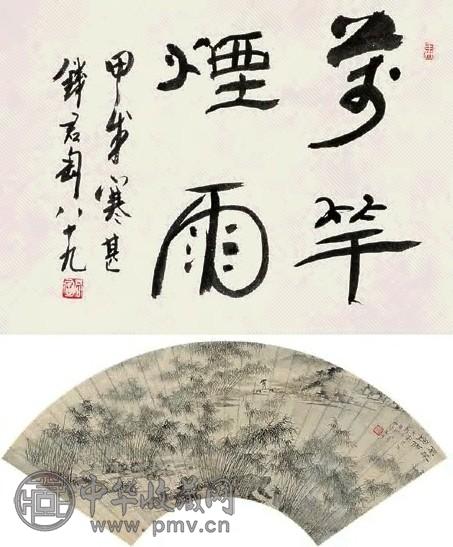 萬竿
煙雨
甲戌寒甚
錢君匋八十九
中华收藏网
www.pmv.cn